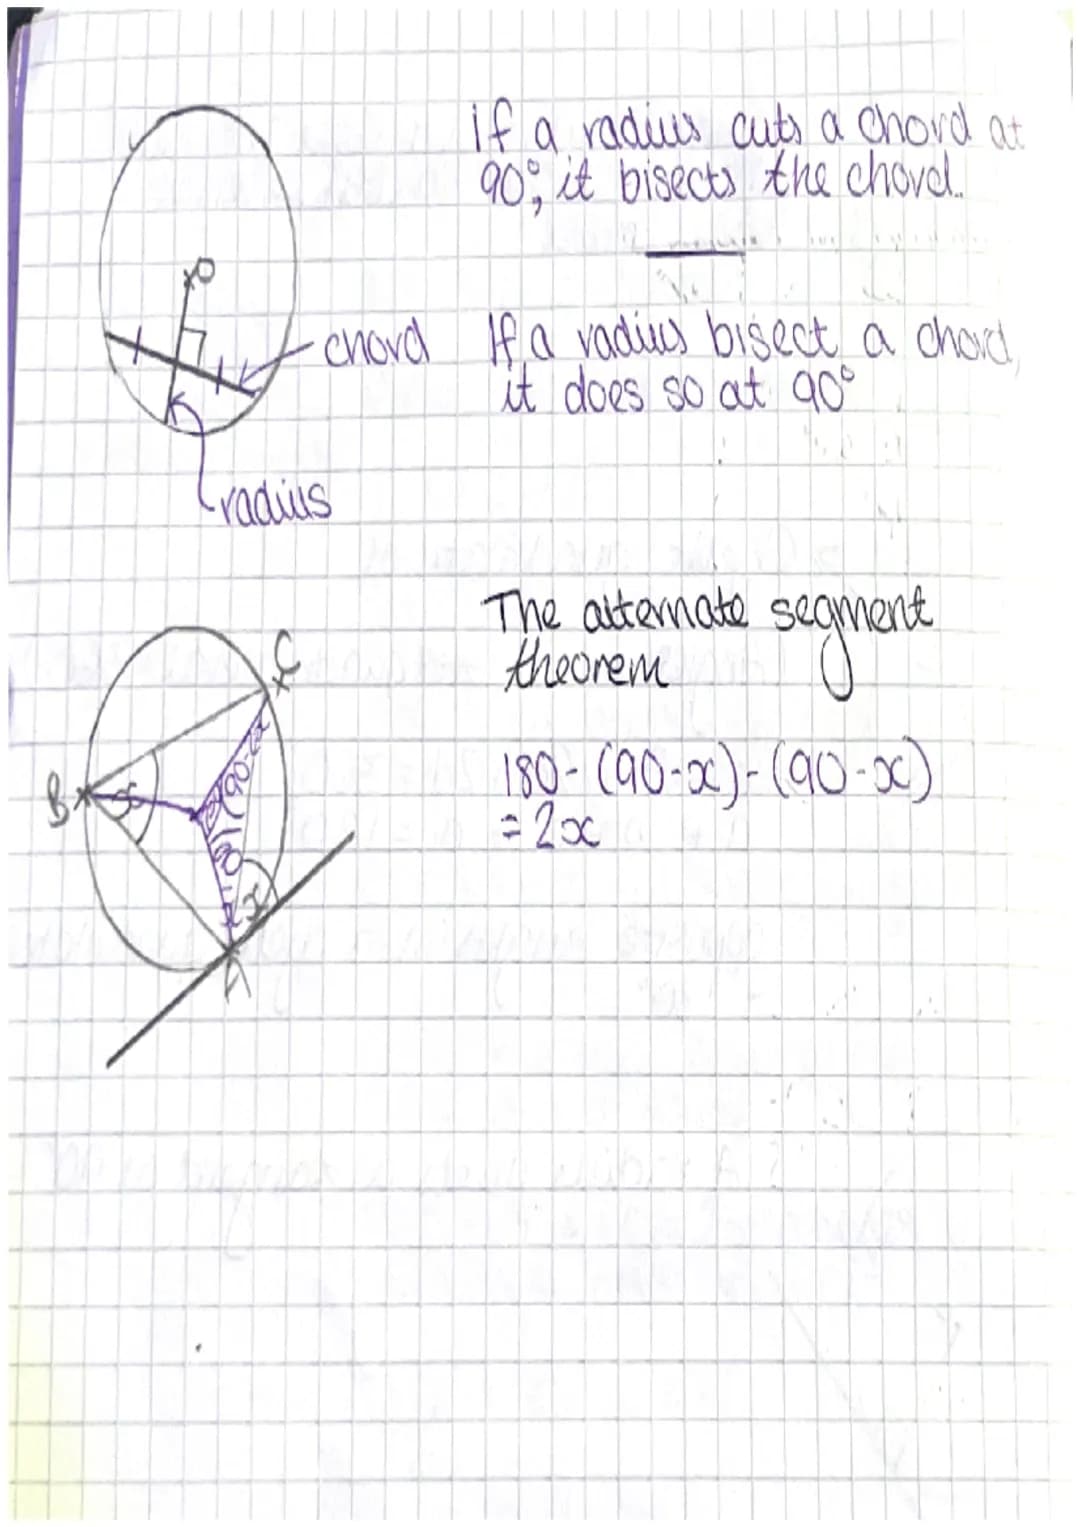 If a radius cuts a chord at
90°, it bisects the chord.
O
chord
If a radius bisect a chord,
it does so at 90°
radius
The alternate segment
theorem
C
90-x
180-(90-x)-(90-x)
= 2x
B
x
x
A